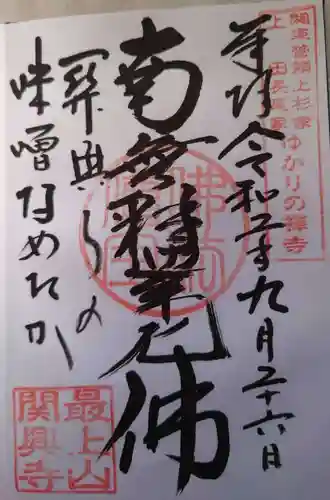 関東管領上杉家
上田長尾家ゆかりの禅寺
奉拝 令和二年九月二十六日
南無釈迦牟尼佛
関興寺の
味噌なめたか
最上山
関興寺